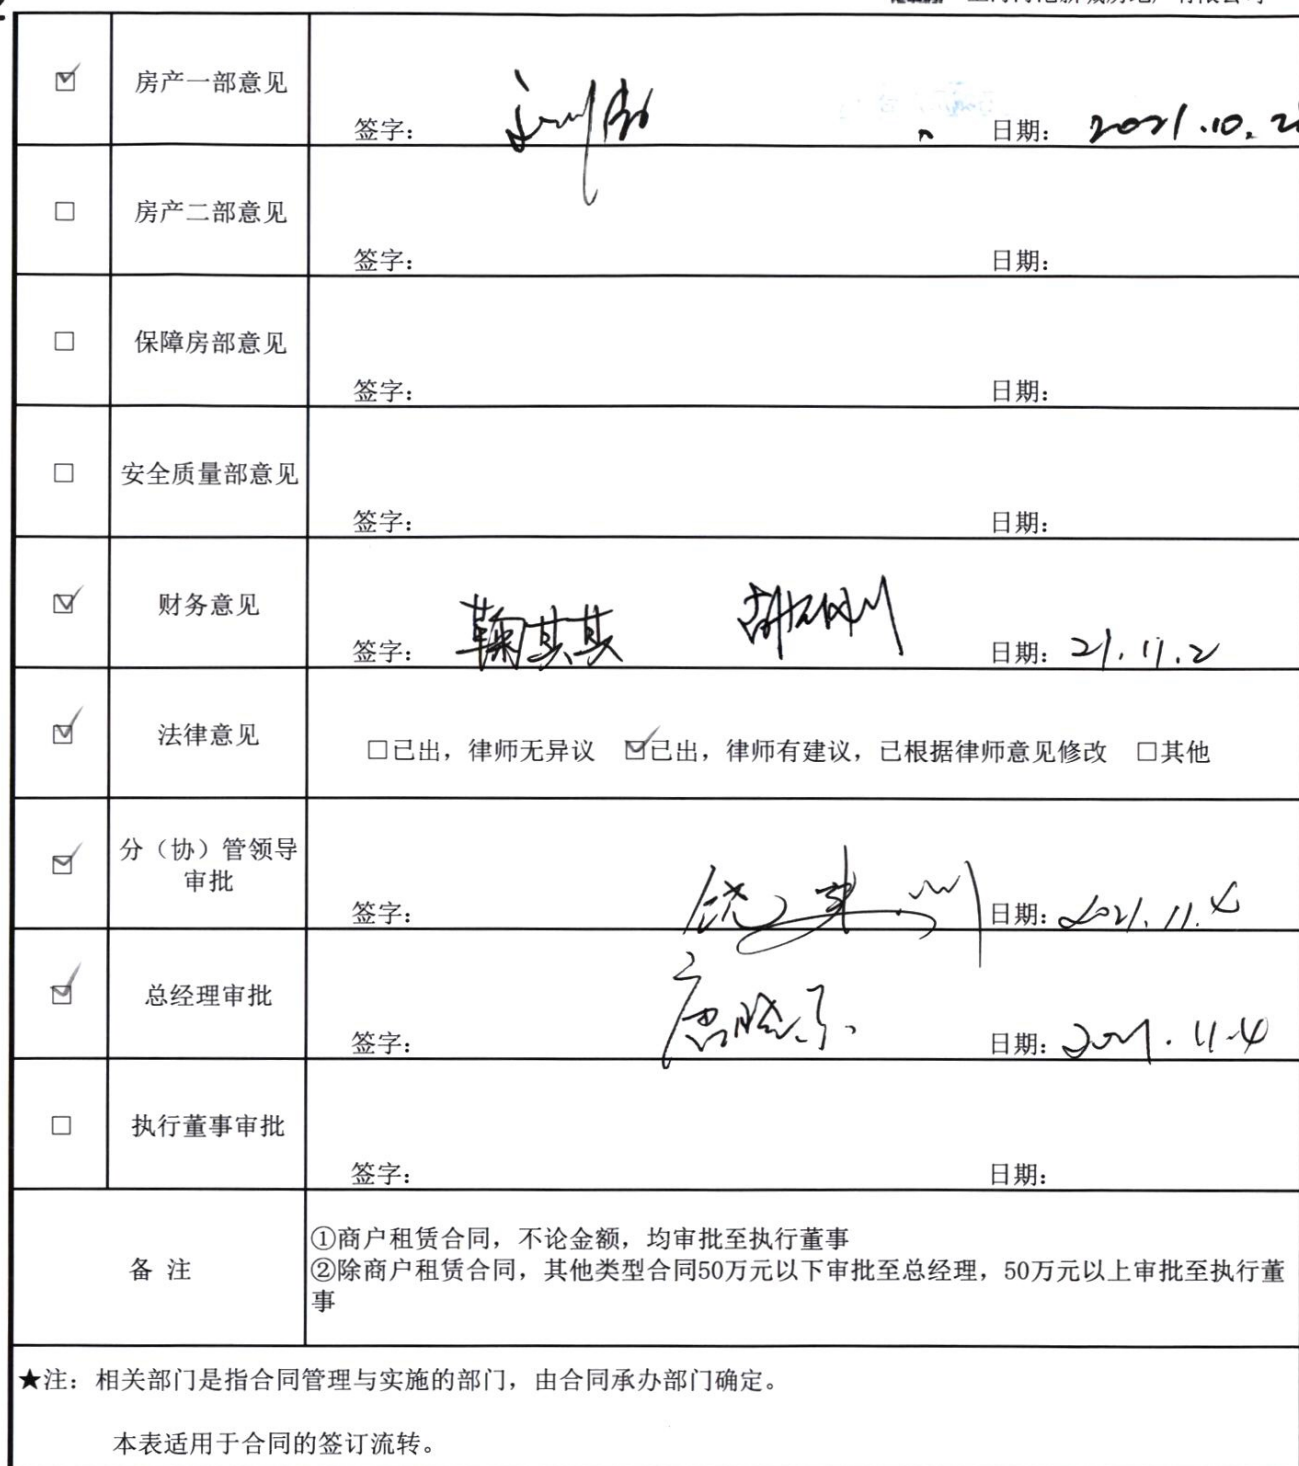 ☑ 房产一部意见
签字： 日期： 2021.10.2
□ 房产二部意见
签字： 日期：
□ 保障房部意见
签字： 日期：
□ 安全质量部意见
签字： 日期：
☑ 财务意见
签字： 鞠其其 日期： 21.11.2
☑ 法律意见 □已出，律师无异议 ☑已出，律师有建议，已根据律师意见修改 □其他
☑ 分（协）管领导
审批
签字： 日期： 2021.11.4
☑ 总经理审批
签字： 日期： 2021.11.4
□ 执行董事审批
签字： 日期：
备 注
①商户租赁合同，不论金额，均审批至执行董事
②除商户租赁合同，其他类型合同50万元以下审批至总经理，50万元以上审批至执行董
事
★注：相关部门是指合同管理与实施的部门，由合同承办部门确定。
本表适用于合同的签订流转。